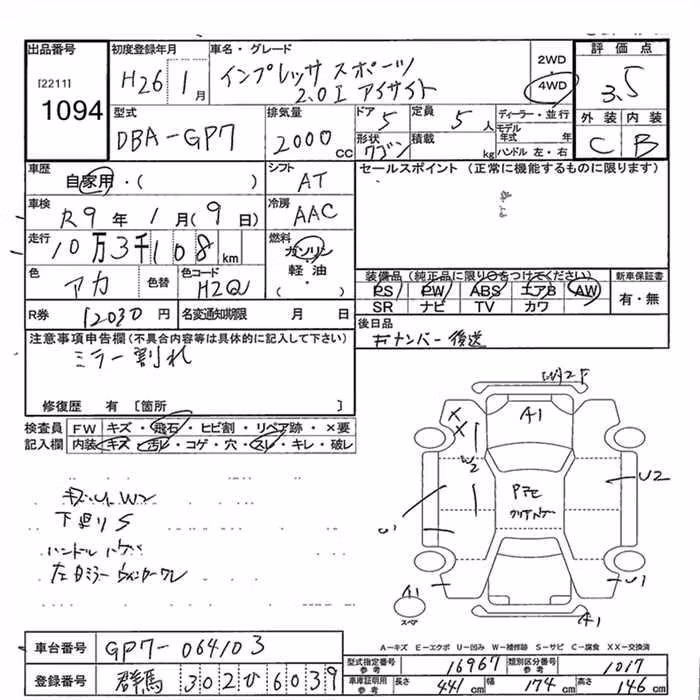 出品番号
[2211]
1094
初度登録年月
H26 1月
車名・グレード
インプレッサ スポーツ
2.0I アイサイト
2WD
4WD
評価点
3.5
外装 内装
C B
型式
DBA-GP7
排気量
2000 CC
ドア 5
定員 5人
形状 ワゴン
積載 kg
ディーラー・並行
モデル年式 年
ハンドル 左・右
車歴
自家用・( )
シフト
AT
セールスポイント (正常に機能するものに限ります)
車検
R9年 1月(9日)
冷房
AAC
走行
10万3千108km
燃料
ガソリン
軽油
( ・ )
色
アカ
色替
色コード
H2Q
装備品 (純正品に限り○をつけてください)
PS PW ABS エアB AW
SR ナビ TV カワ
新車保証書
有・無
R券
12030円
名変通知期限 月 日
後日品
キナンバー後送
注意事項申告欄(不具合内容等は具体的に記入して下さい)
ミラー割れ
修復歴 有 [箇所 ]
検査員記入欄
FW キズ・飛石・ヒビ割・リペア跡・×要
内装 キズ・汚レ・コゲ・穴・スレ・キレ・破レ
W2
下廻りS
ハンドル
左ミラーウィンカーワレ
A1
W2
U2
U1
A1
A1
スペア
A-キズ E-エクボ U-凹み W-補修跡 S-サビ C-腐食 XX-交換済
車台番号
GP7-064103
登録番号
群馬 302ひ6039
型式指定番号 参考
16967
類別区分番号 参考
1017
車庫証明用 参考
長さ 441cm
幅 174cm
高さ 146cm